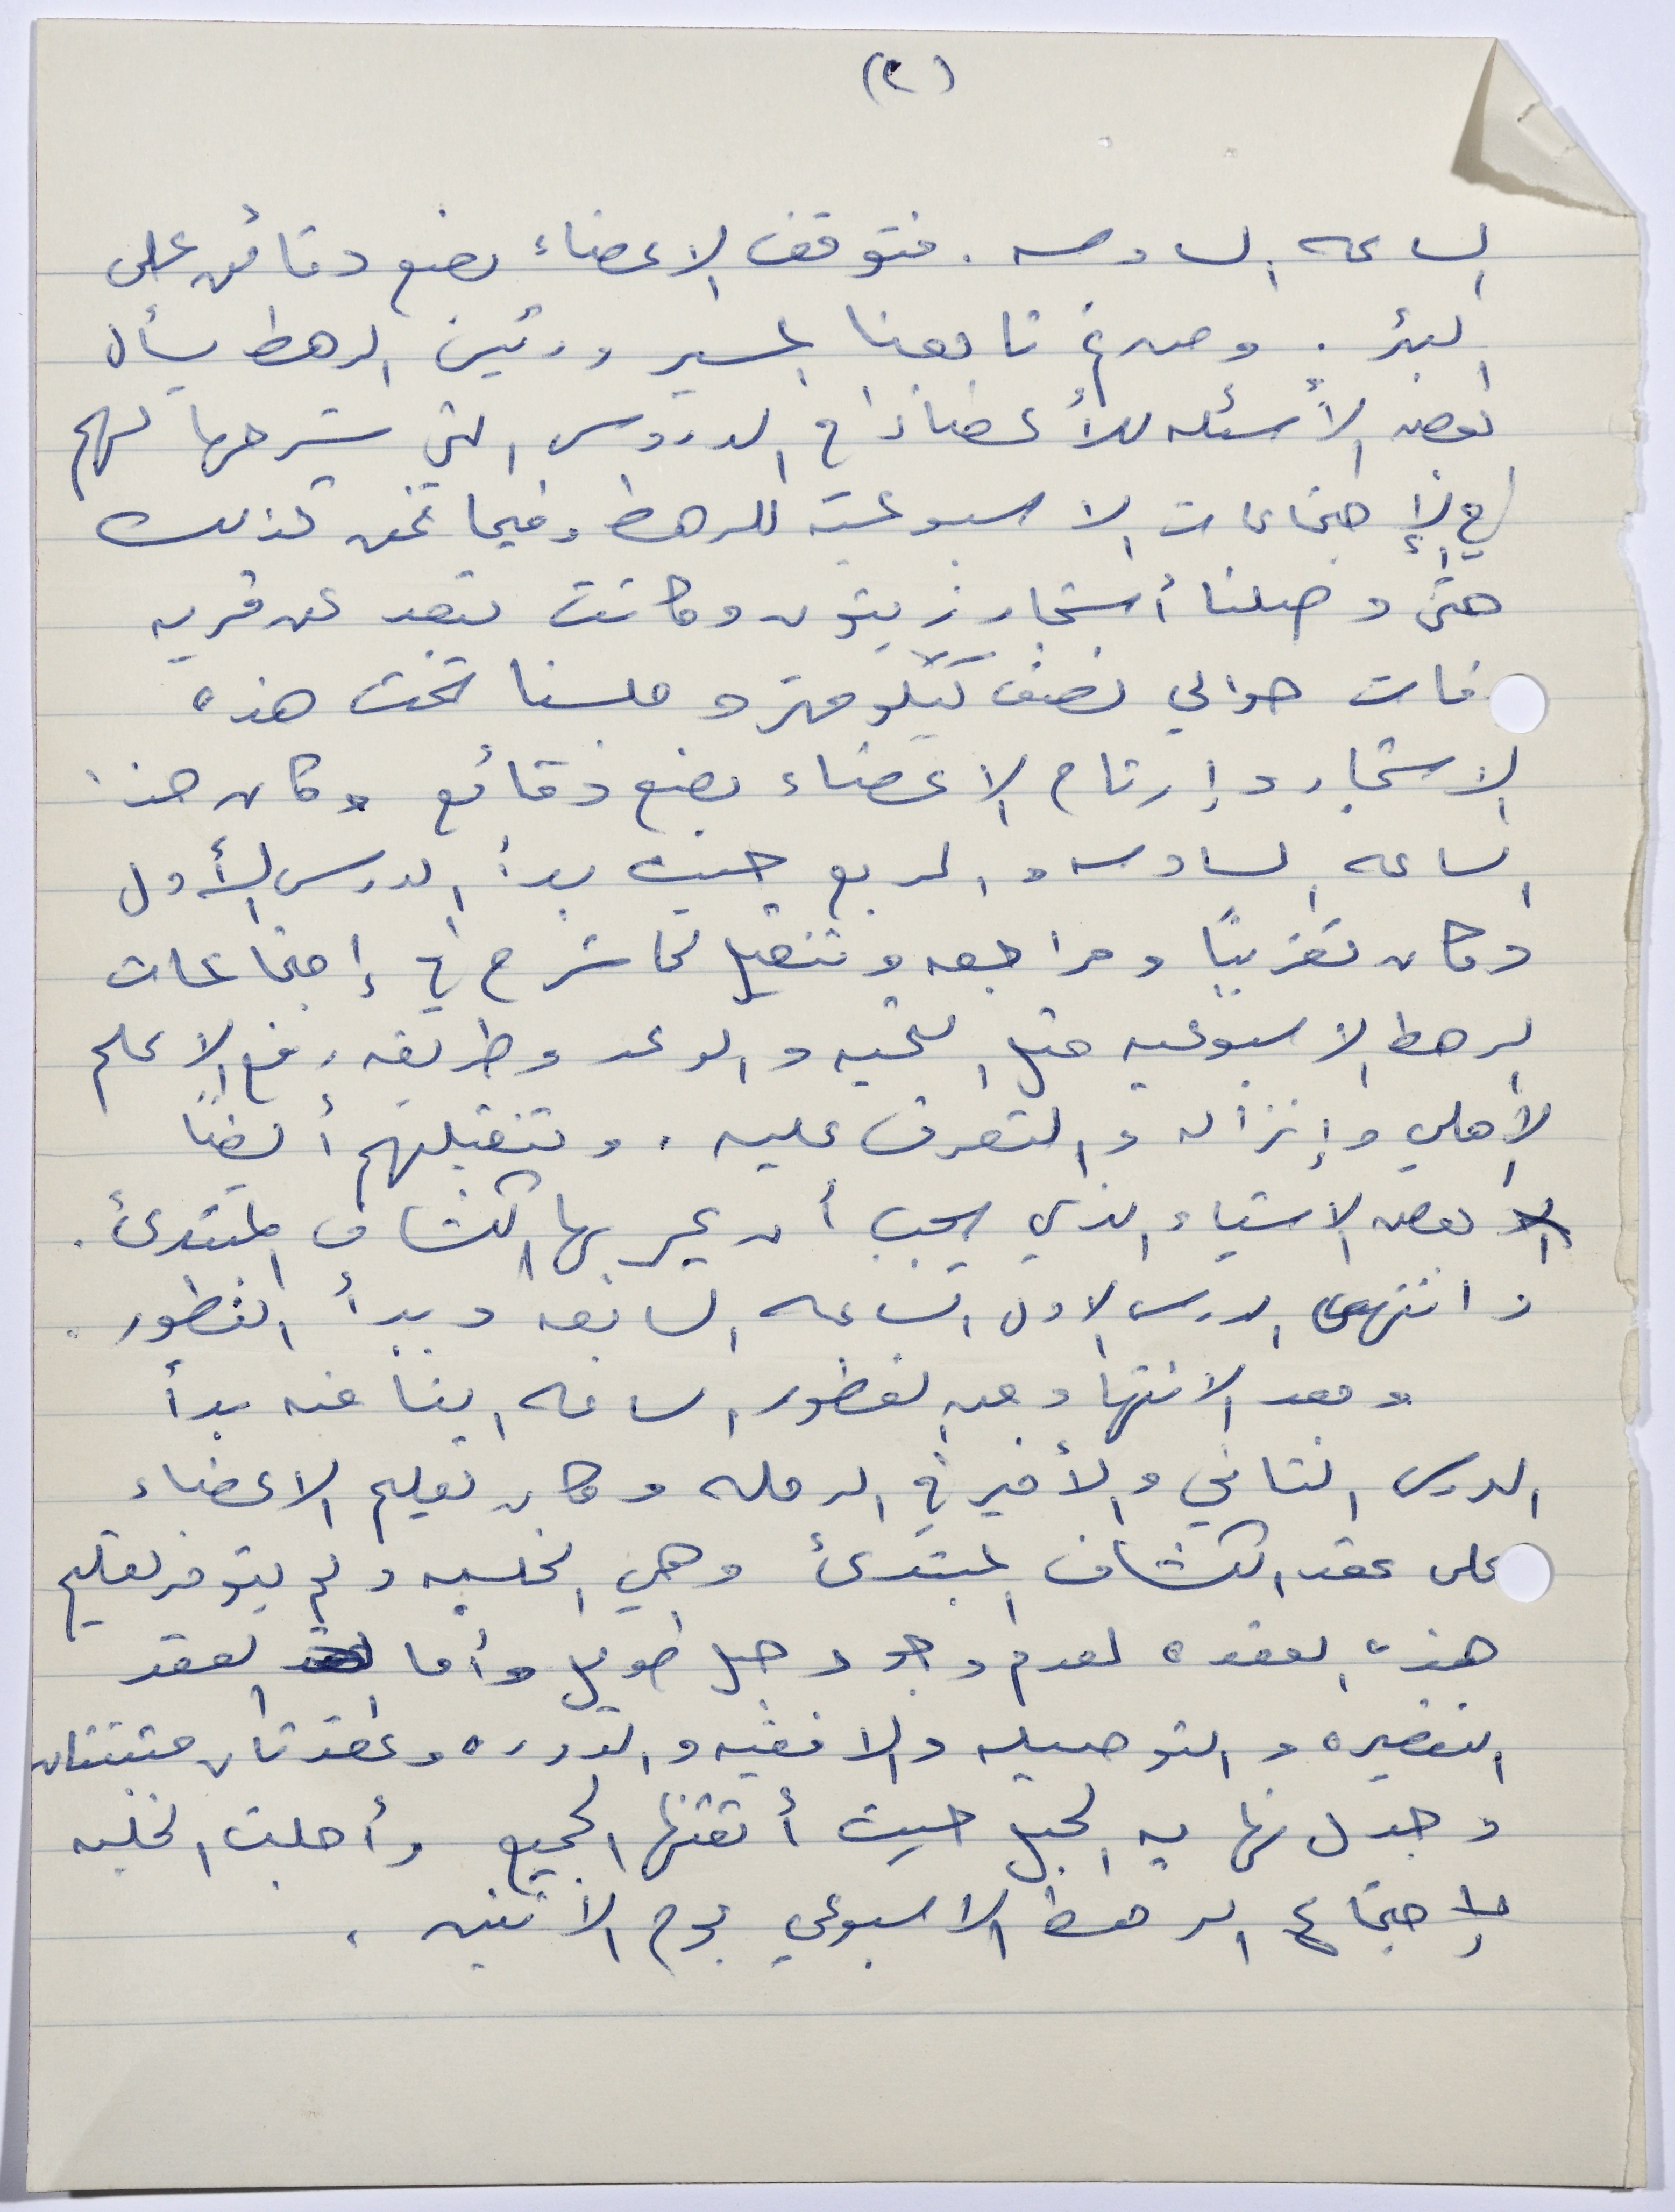 (٢)
الساعه السادسه . فتوقف الاعضاء بضع دقائق على
البئر . ومن ثم تابعنا المسير ورئيس الرهط يسأل
بعض الأسئله للأعضاء في الدروس التي شرحها لهم
في الإجتماعات الاسبوعية للرهط وفيما نحن كذلك
حتى وصلنا أشجار زيتون وكانت تبعد عن قريه
حوالي نصف كيلو متر وجلسنا تحت هذه
الاشجار وإرتاح الاعضاء بضع دقائع وكان هذا
الساعه السادسه والربع حيث بدأ الدرس الأول
وكان تقريبًا مراجعه وتنقيل لما شرح في إجتماعات
الرهط الاسبوعيه مثل التحيه والوعد وطريقه رفع الاعلم
الأهلي وإنزاله والتعرف عليه . وتنقيلهم أيضًا
بعض الاشياء الذي يجب أن يمر بها الكشاف المبتدئ .
وانتهى الدرس الاول الساعه السابعه وبدأ الفطور .
وبعد الانتهاء من الفطور الساعه الثامنه بدأ
الدرس الثاني والأخير في الرحله وكان تعليم الاعضاء
على عقد الكشاف المبتدئ وهي الخلبيه ولم يتوفر تعليم
هذه العقده لعدم وجود حبل طويل وأما العقد
التقصيره والتوصيله والافقيه والدوره وعقدتان متينتان
وجدل نهايه الحبل حيث أتقنها الجميع وأجلت الخلبيه
لإجتماع الرهط الاسبوعي يوم الاثنين .